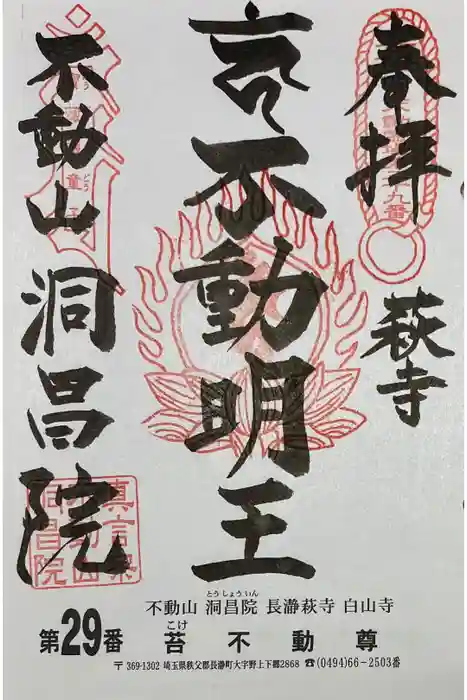 奉拝
萩寺
不動明王
不動山
洞昌院
不動山 洞昌院 長瀞萩寺 白山寺
とうしょういん
第29番 苔不動尊
こけ
〒369-1302 埼玉県秩父郡長瀞町大字野上下郷2868 ☎(0494)66-2503番